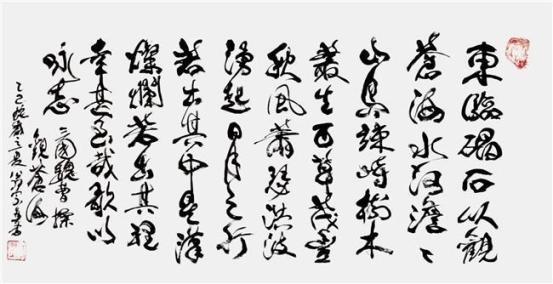 東臨碣石以觀
蒼海水何澹々
山島竦峙樹木
叢生百草茂豐
秋風蕭瑟洪波
湧起日月之行
若出其中星漢
燦爛若出其裡
幸甚至哉歌以
詠志
三國魏曹操
觀蒼海